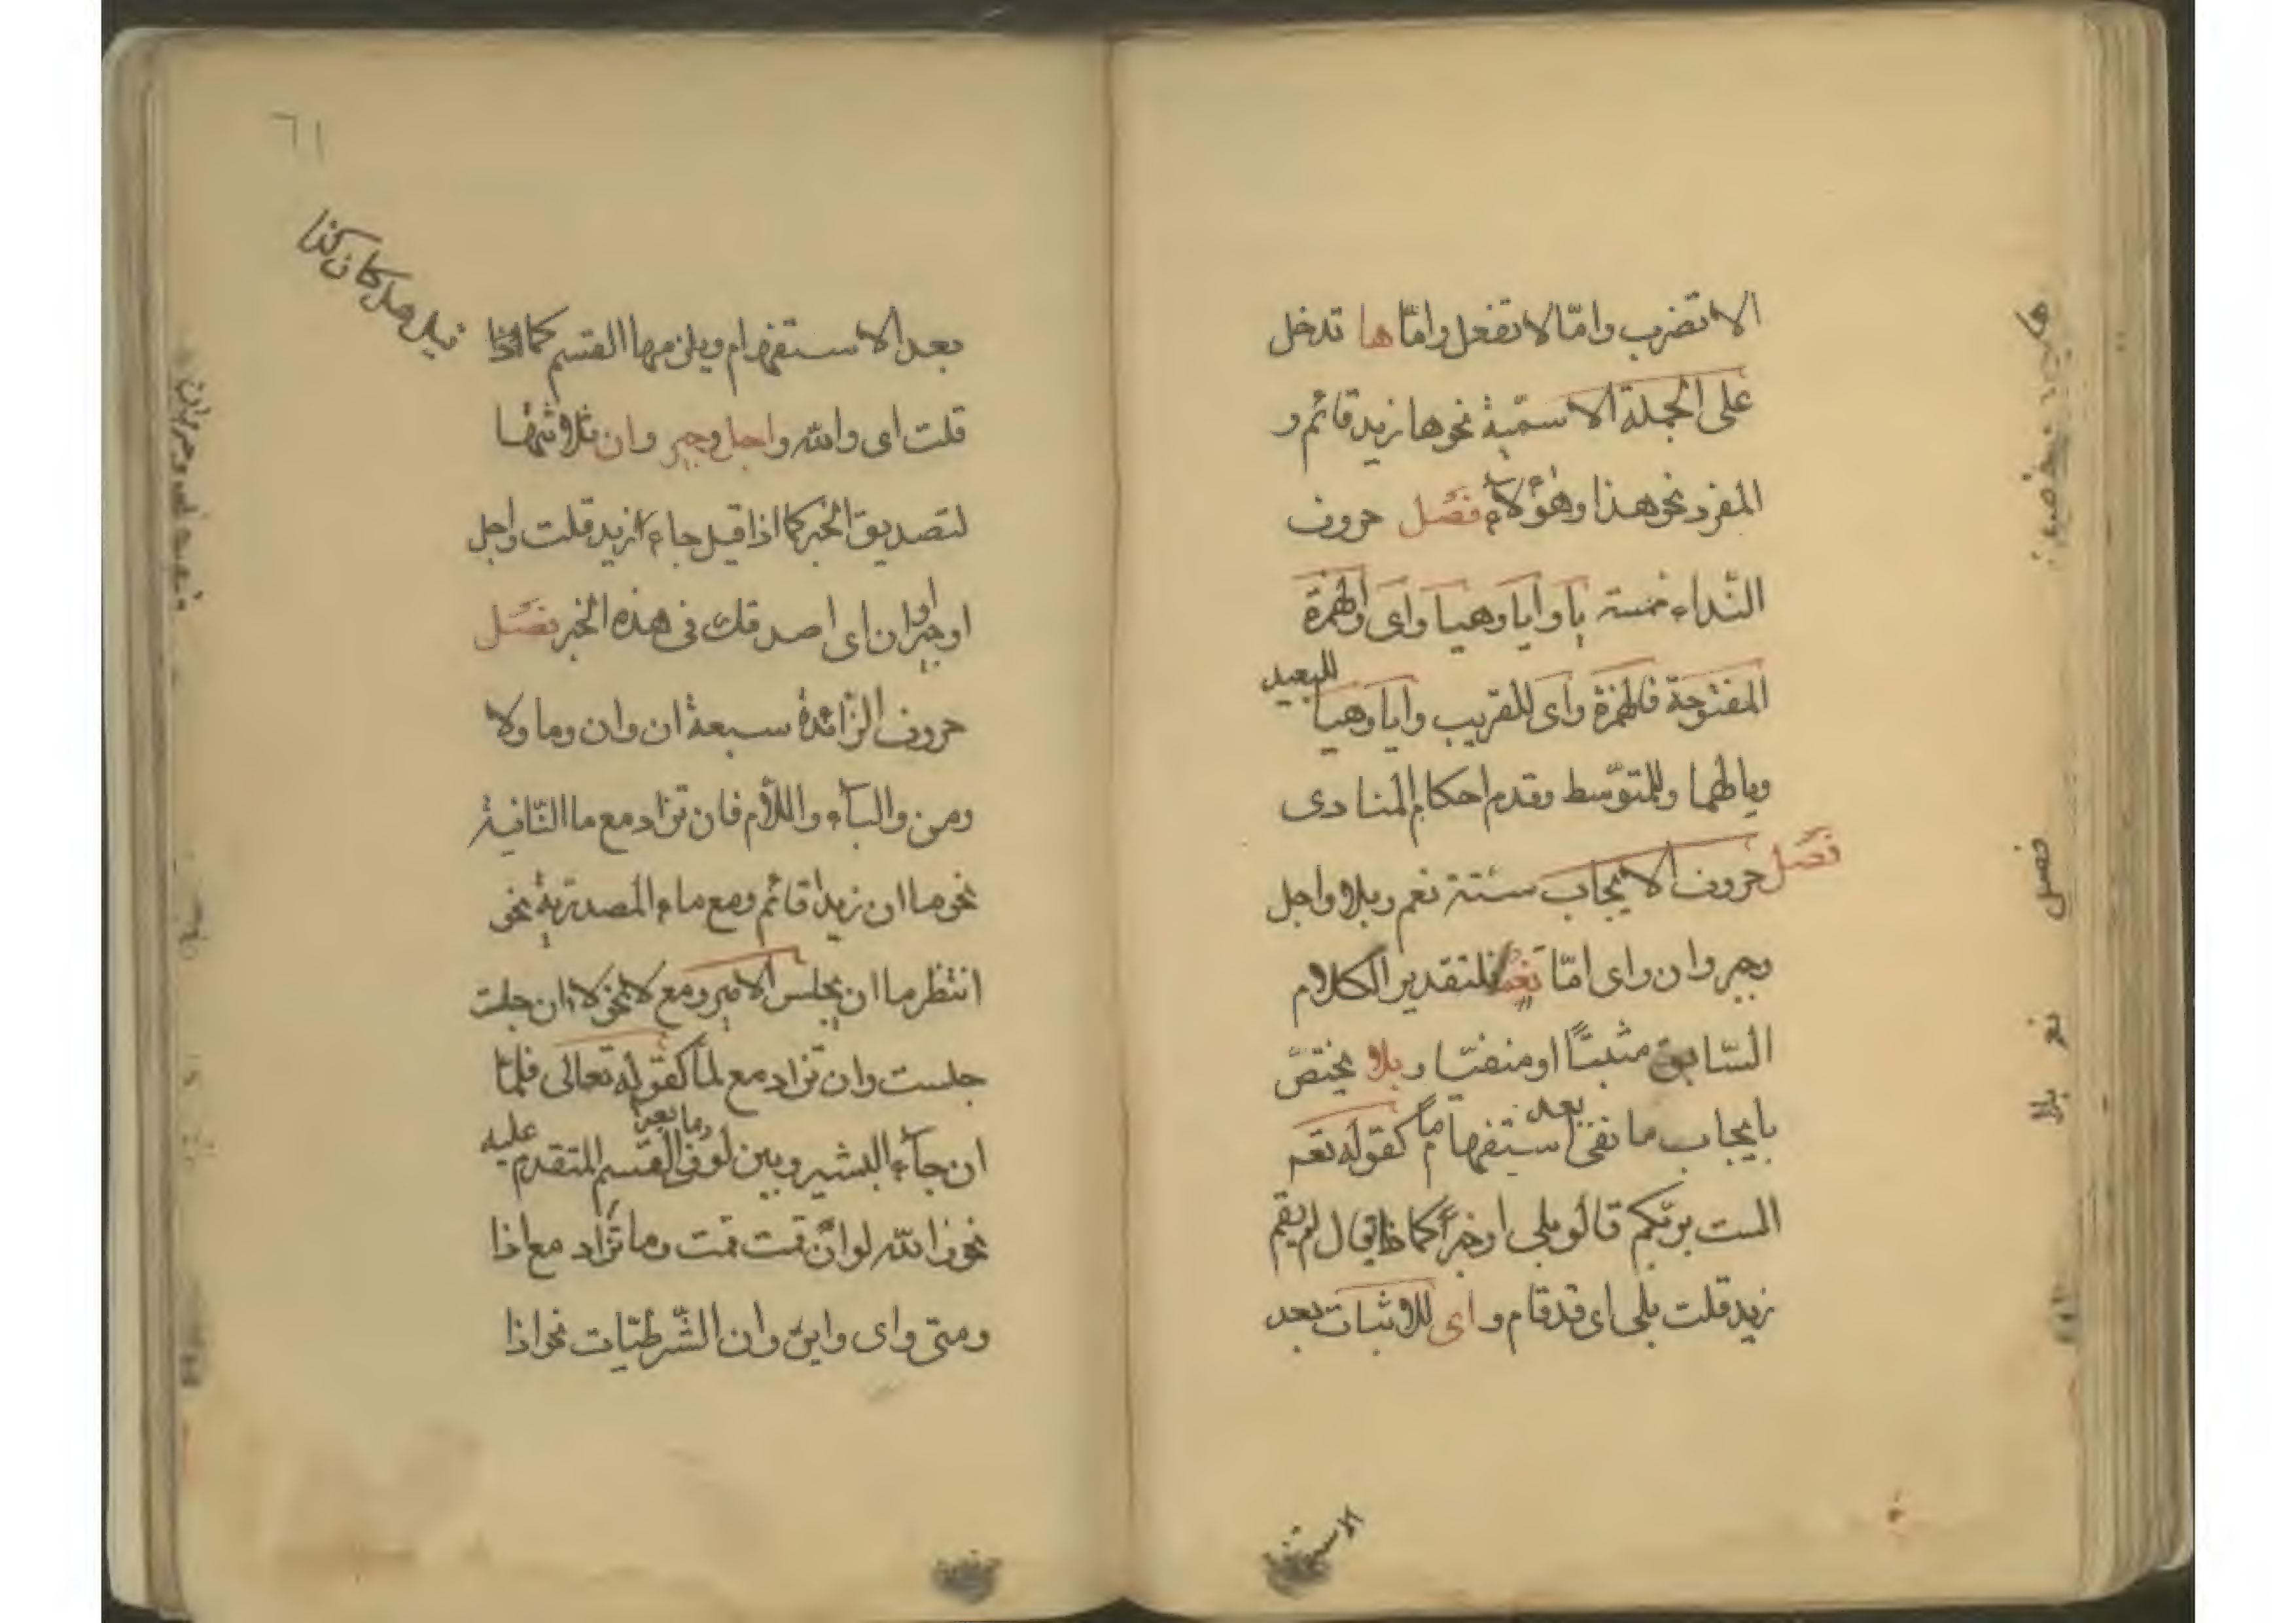 الا تضرب واما لا تفعل واما ها تدخل
على الجملة الاسمية نحو ها زيد قائم و
المفرد نحو هذا وهؤلاء فصل حروف
النداء خمسة يا وايا وهيا واى والهمزة
المفتوحة فالهمزة واى للقريب وايا وهيا للبعيد
ويا لهما وللمتوسط وقدم احكام المنادى
فصل حروف الايجاب ستة نعم وبلا واجل
وجير وان واى اما نعم فلتقدير الكلام
السابق مثبتا او منفيا وبلا يختص
بايجاب ما نفى بعد استفهاما كقوله تعم
الست بربكم قالو بلى او خبرا كما اذا يقال لم يقم
زيد قلت بلى اى قد قام واى للاثبات بعد
الاستفهام
فصل
نعم
بلا
٦١
قيل هل كان كذا
بعد الاستفهام ويلزمها القسم كما اذا
قلت اى والله واجل وجير وان ثلاثتها
لتصديق الخبر كما اذا قيل جاء زيد قلت اجل
او جير او ان اى اصدقك فى هذه الخبر فصل
حروف الزائدة سبعة ان وان وما ولا
ومن والباء واللام فان تزاد مع ما النافية
نحو ما ان زيد قائم ومع ماء المصدرية نحو
انتظر ما ان يجلس الامير ومع لا نحو لا ان جلت
جلست وان تزاد مع لما كقوله تعالى فلما
ان جاء البشير وبين لو وفى القسم المتقدم عليه
نحو والله لو ان قمت قمت وما تزاد مع اذا
ومتى واى واين وان الشرطيات نحو اذا